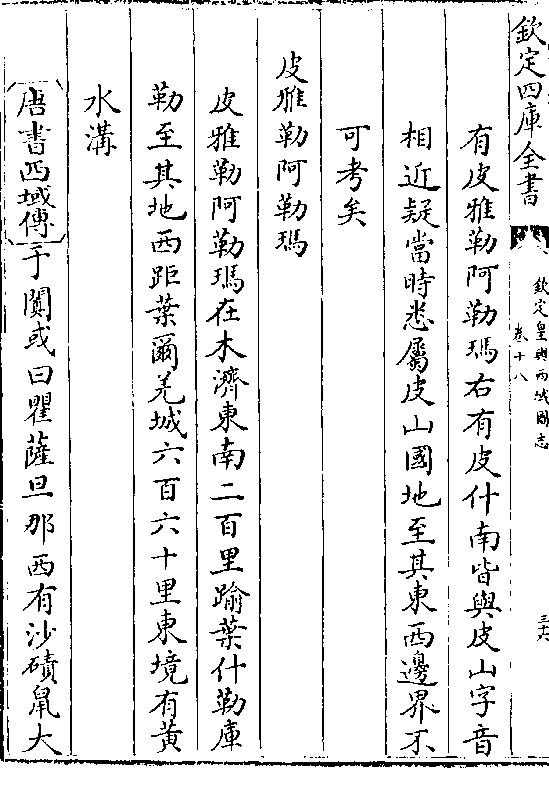 欽定四庫全書
欽定皇輿西域圖志
卷十八
三十六
有皮雅勒阿勒瑪右有皮什南皆與皮山字音
相近疑當時悉屬皮山國地至其東西邊界不
可考矣
皮雅勒阿勒瑪
皮雅勒阿勒瑪在木濟東南二百里踰葉什勒庫
勒至其地西距葉爾羌城六百六十里東境有黃
水溝
唐書西域傳于闐或曰瞿薩旦那西有沙磧鼠大